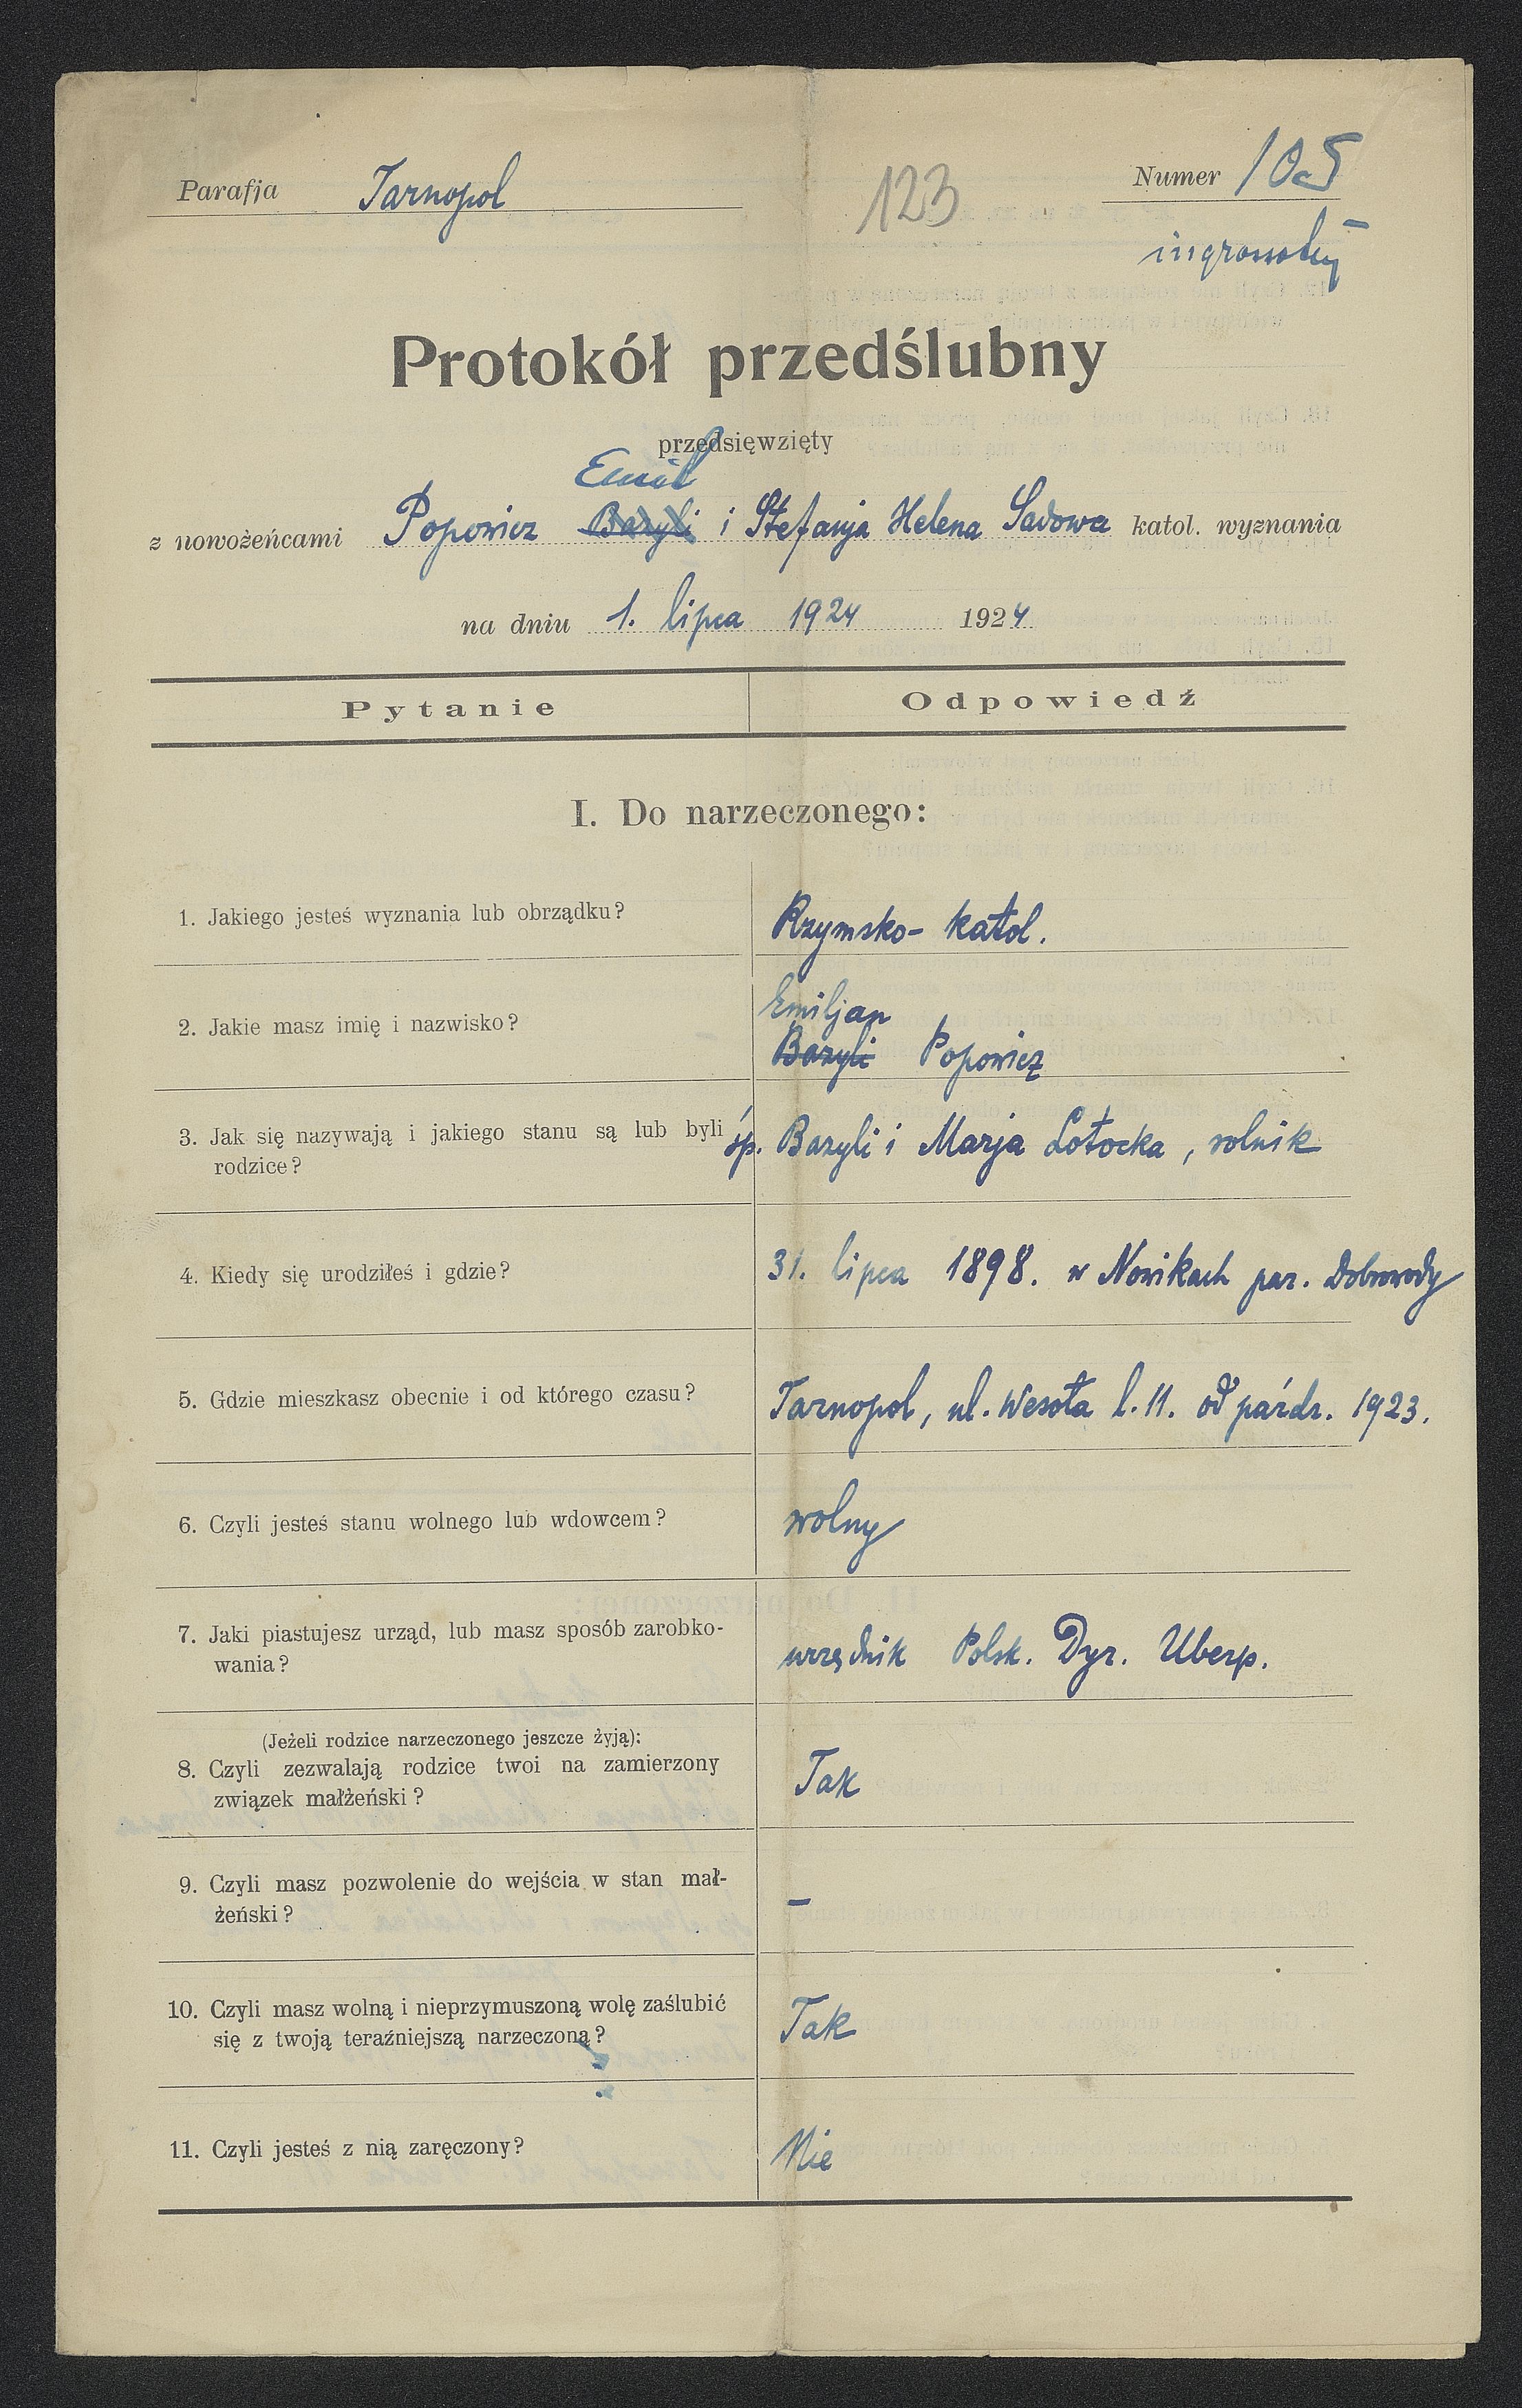 Parafja Tarnopol
123
Numer 105
Protokół przedślubny
przedsięwzięty
Emil
z nowożeńcami Popowicz Bazyli i Stefanja Helena Sadowa katol. wyznania
na dniu 1. lipca 1924 1924
Pytanie Odpowiedź
I. Do narzeczonego:
1. Jakiego jesteś wyznania lub obrządku? Rzymsko-katol.
Emiljan
2. Jakie masz imię i nazwisko? Bazyli Popowicz
3. Jak się nazywają i jakiego stanu są lub byli śp. Bazyli i Marja Łotocka, rolnik
rodzice?
4. Kiedy się urodziłeś i gdzie? 31. lipca 1898. w Nowikach par. Dobrowody
5. Gdzie mieszkasz obecnie i od którego czasu? Tarnopol, ul. Wesoła l. 11. od paźdz. 1923.
6. Czyli jesteś stanu wolnego lub wdowcem? wolny
7. Jaki piastujesz urząd, lub masz sposób zarobko-
wania? urzędnik Polsk. Dyr. Ubezp.
(Jeżeli rodzice narzeczonego jeszcze żyją):
8. Czyli zezwalają rodzice twoi na zamierzony Tak
związek małżeński?
9. Czyli masz pozwolenie do wejścia w stan mał- –
żeński?
10. Czyli masz wolną i nieprzymuszoną wolę zaślubić Tak
się z twoją teraźniejszą narzeczoną?
11. Czyli jesteś z nią zaręczony? Nie